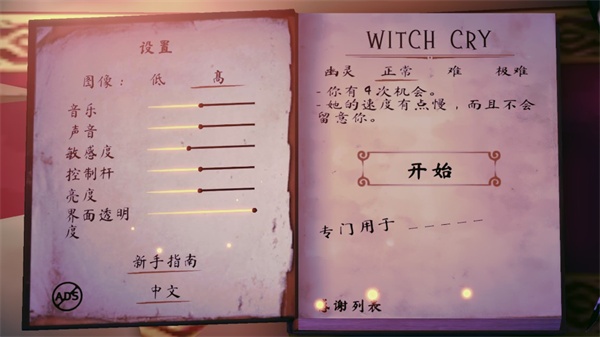 设置
图像: 低 高
音乐
声音
敏感度
控制杆
亮度
界面透明
度
新手指南
中文
ADS
WITCH CRY
幽灵 正常 难 极难
- 你有4次机会。
- 她的速度有点慢,而且不会
留意你。
开始
专门用于 _ _ _ _ _
谢列表